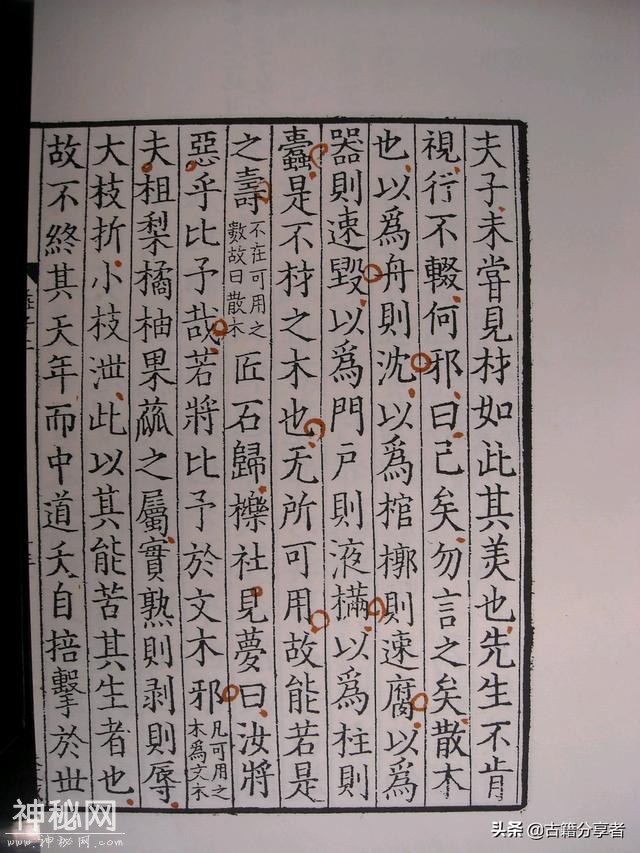 夫子未嘗見材如此其美也先生不肯
視行不輟何邪曰已矣勿言之矣散木
也以爲舟則沈以爲棺槨則速腐以爲
器則速毀以爲門戶則液樠以爲柱則
蠹是不材之木也无所可用故能若是
之壽不在可用之數故曰散木匠石歸櫟社見夢曰汝將
惡乎比予哉若將比予於文木邪凡可用之木爲文木
夫柤梨橘柚果蓏之屬實熟則剥則辱
大枝折小枝泄此以其能苦其生者也
故不終其天年而中道夭自掊擊於世
神秘网
www.神秘网.com
头条 @古籍分享者